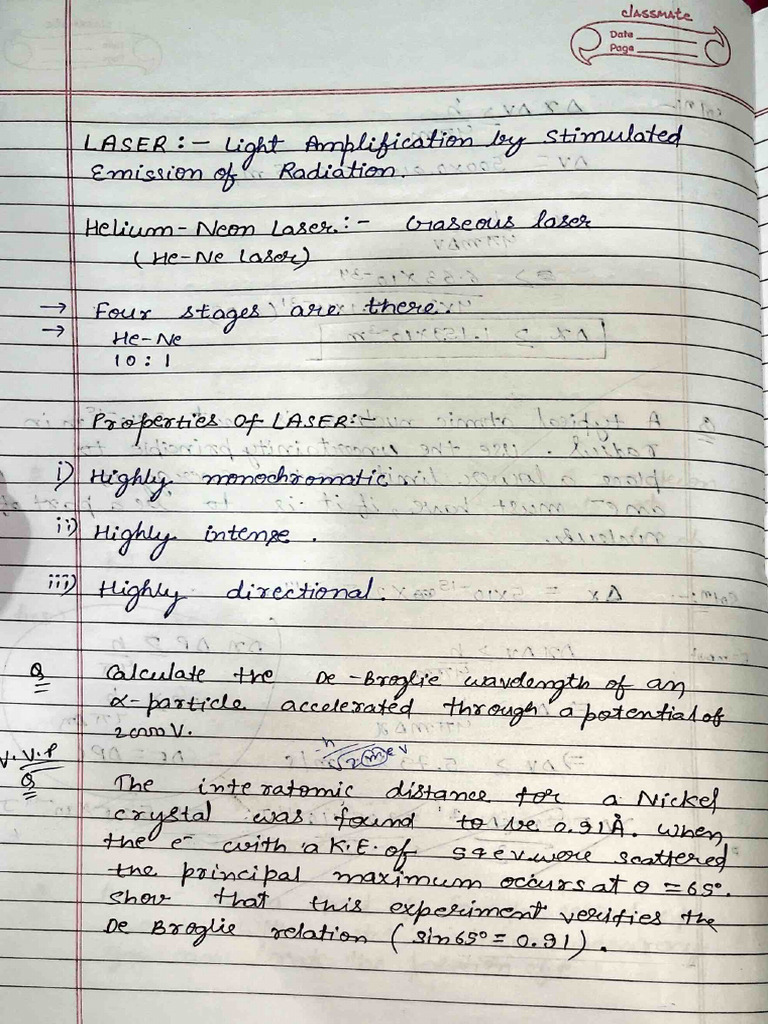 classmate
Date
Page
LASER :- Light Amplification by Stimulated
Emission of Radiation.
Helium-Neon Laser:- Gaseous laser
(He-Ne Laser)
→ Four stages are there.
→ He-Ne
10 : 1
Properties Of LASER:-
i) Highly monochromatic
ii) Highly intense.
iii) Highly directional.
Q Calculate the De-Broglie wavelength of an
α-particle accelerated through a potential of
2000V.
V.V.P
Q The interatomic distance for a Nickel
crystal was found to be 0.91Å. When
the e⁻ with a K.E. of 54 ev were scattered
the principal maximum occurs at θ = 65°.
Show that this experiment verifies the
De Broglie relation (sin65° = 0.91).